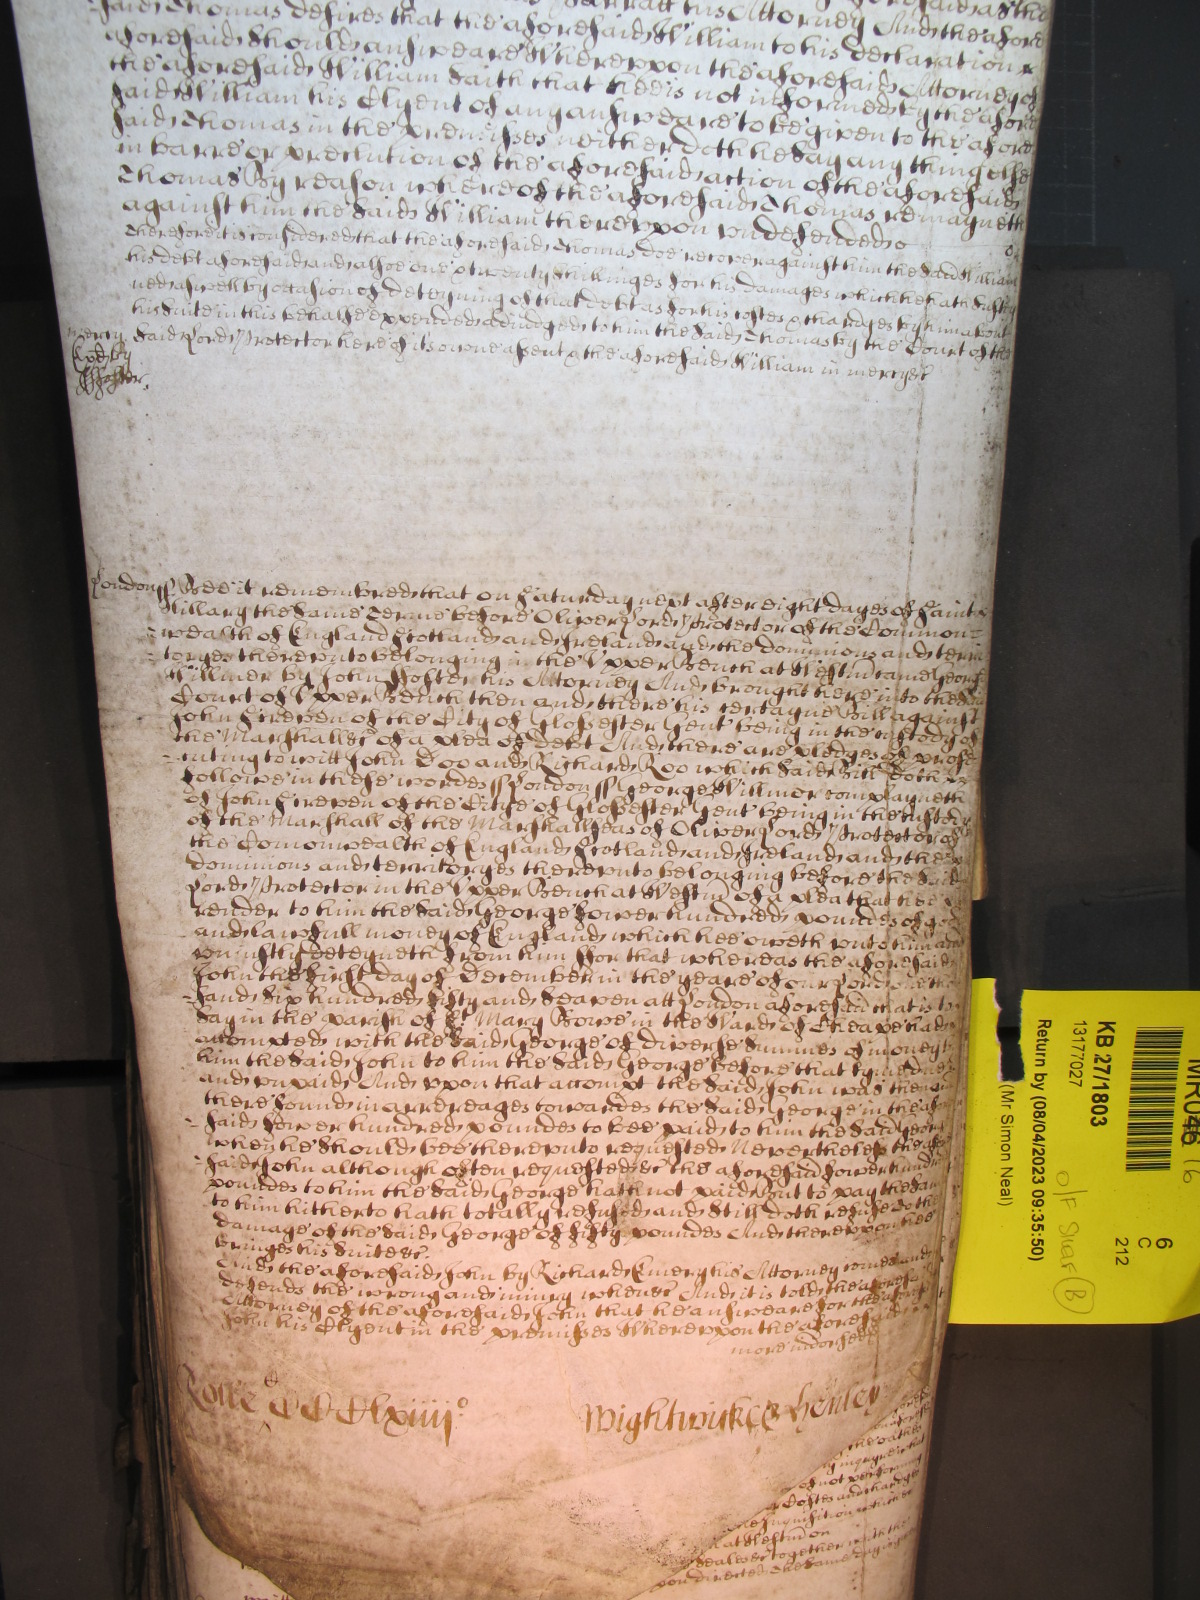 said Thomas desires that the aforesaid William to his declaration
aforesaid should answeare Whereupon the aforesaid Attorney of
the aforesaid William saith that hee is not informed by the afore
said William his Clyent of any answeare to be given to the afore
said Thomas in the premisses neither doth he say any thing else
in barre or preclution of the aforesaid action of the aforesaid
Thomas By reason whereof the aforesaid Thomas remayneth
against him the said William thereupon undefended
Therefore it is considered that the aforesaid Thomas doe recover against him the said William
his debt aforesaid and alsoe one & twenty shillinges for his damages which hee hath sustey
ned aswell by occasion of deteyning of that debt as for his costes & chardges by him about
his suite in this behalfe expended adjudged to him the said Thomas by the Court of the
said Lord Protector here of its owne assent & the aforesaid William in mercy &c
mercy
London ss Bee it remembred that on Saturday next after eight dayes of Saint
Hillary the same Terme before Oliver Lord Protector of the Common
wealth of England Scotland and Ireland and the dominions and terri
toryes thereunto belonging in the Upper Bench at Westm came George
Willmer by John Foster his Attorney And brought here into the said
Court of Upper Bench then and there his certayne Bill against
John Freven of the City of Gloster Gent being in the custody of
the Marshall &c of a plea of debt And there are pledges of prose
cuting to witt John Doo and Richard Roo which said Bill doth
followe in these wordes ss London ss George Willmor complayneth
of John Freven of the Citye of Gloster Gent being in the custody
of the Marshall of the Marshallseas of Oliver Lord Protector of
the Comonwealth of England Scotland and Ireland and the
dominions and territoryes thereunto belonging before the said
Lord Protector in the Upper Bench at Westm of a plea that hee
render to him the said George fower hundred poundes of good
and lawfull money of England which hee oweth unto him and
unjustly deteyneth from him ffor that whereas the aforesaid
John the first day of December in the yeare of our Lord one thou
sand six hundred fifty and seaven att London aforesaid that is to
say in the parish of St Mary Bowe in the Ward of Cheape had
accompted with the said George of diverse summes of money
him the said John to him the said George before that tyme due
and unpaid And upon that accompt the said John was then and
there found in arrereages towardes the said George in the afore
said fower hundred poundes to bee paid to him the said George
when he should bee thereunto requested Neverthelesse the afore
said John although often requested &c the aforesaid fower hundred
poundes to him the said George hath not paid But to pay the same
to him hitherto hath totally refused and still doth refuse To the
damage of the said George of fifty poundes And thereupon hee
bringes his suite &c.
And the aforesaid John by Richard Emery his Attorney comes and
defends the wrong and injury when &c And it is told the aforesaid
Attorney of the aforesaid John that he answeare for the aforesaid
John his Clyent in the premisses Whereupon the aforesaid
more indorsed
Rolle CCClxiiijo
Wightwicke & Henley
of not performing
Costes and chardges
Inquisition
at Westm on
together with the
you directed The same day is given
MR046
6
C
212
KB 27/1803
13177027
Return by (08/04/2023 09:35:50)
(Mr Simon Neal)
O/F Shelf (B)